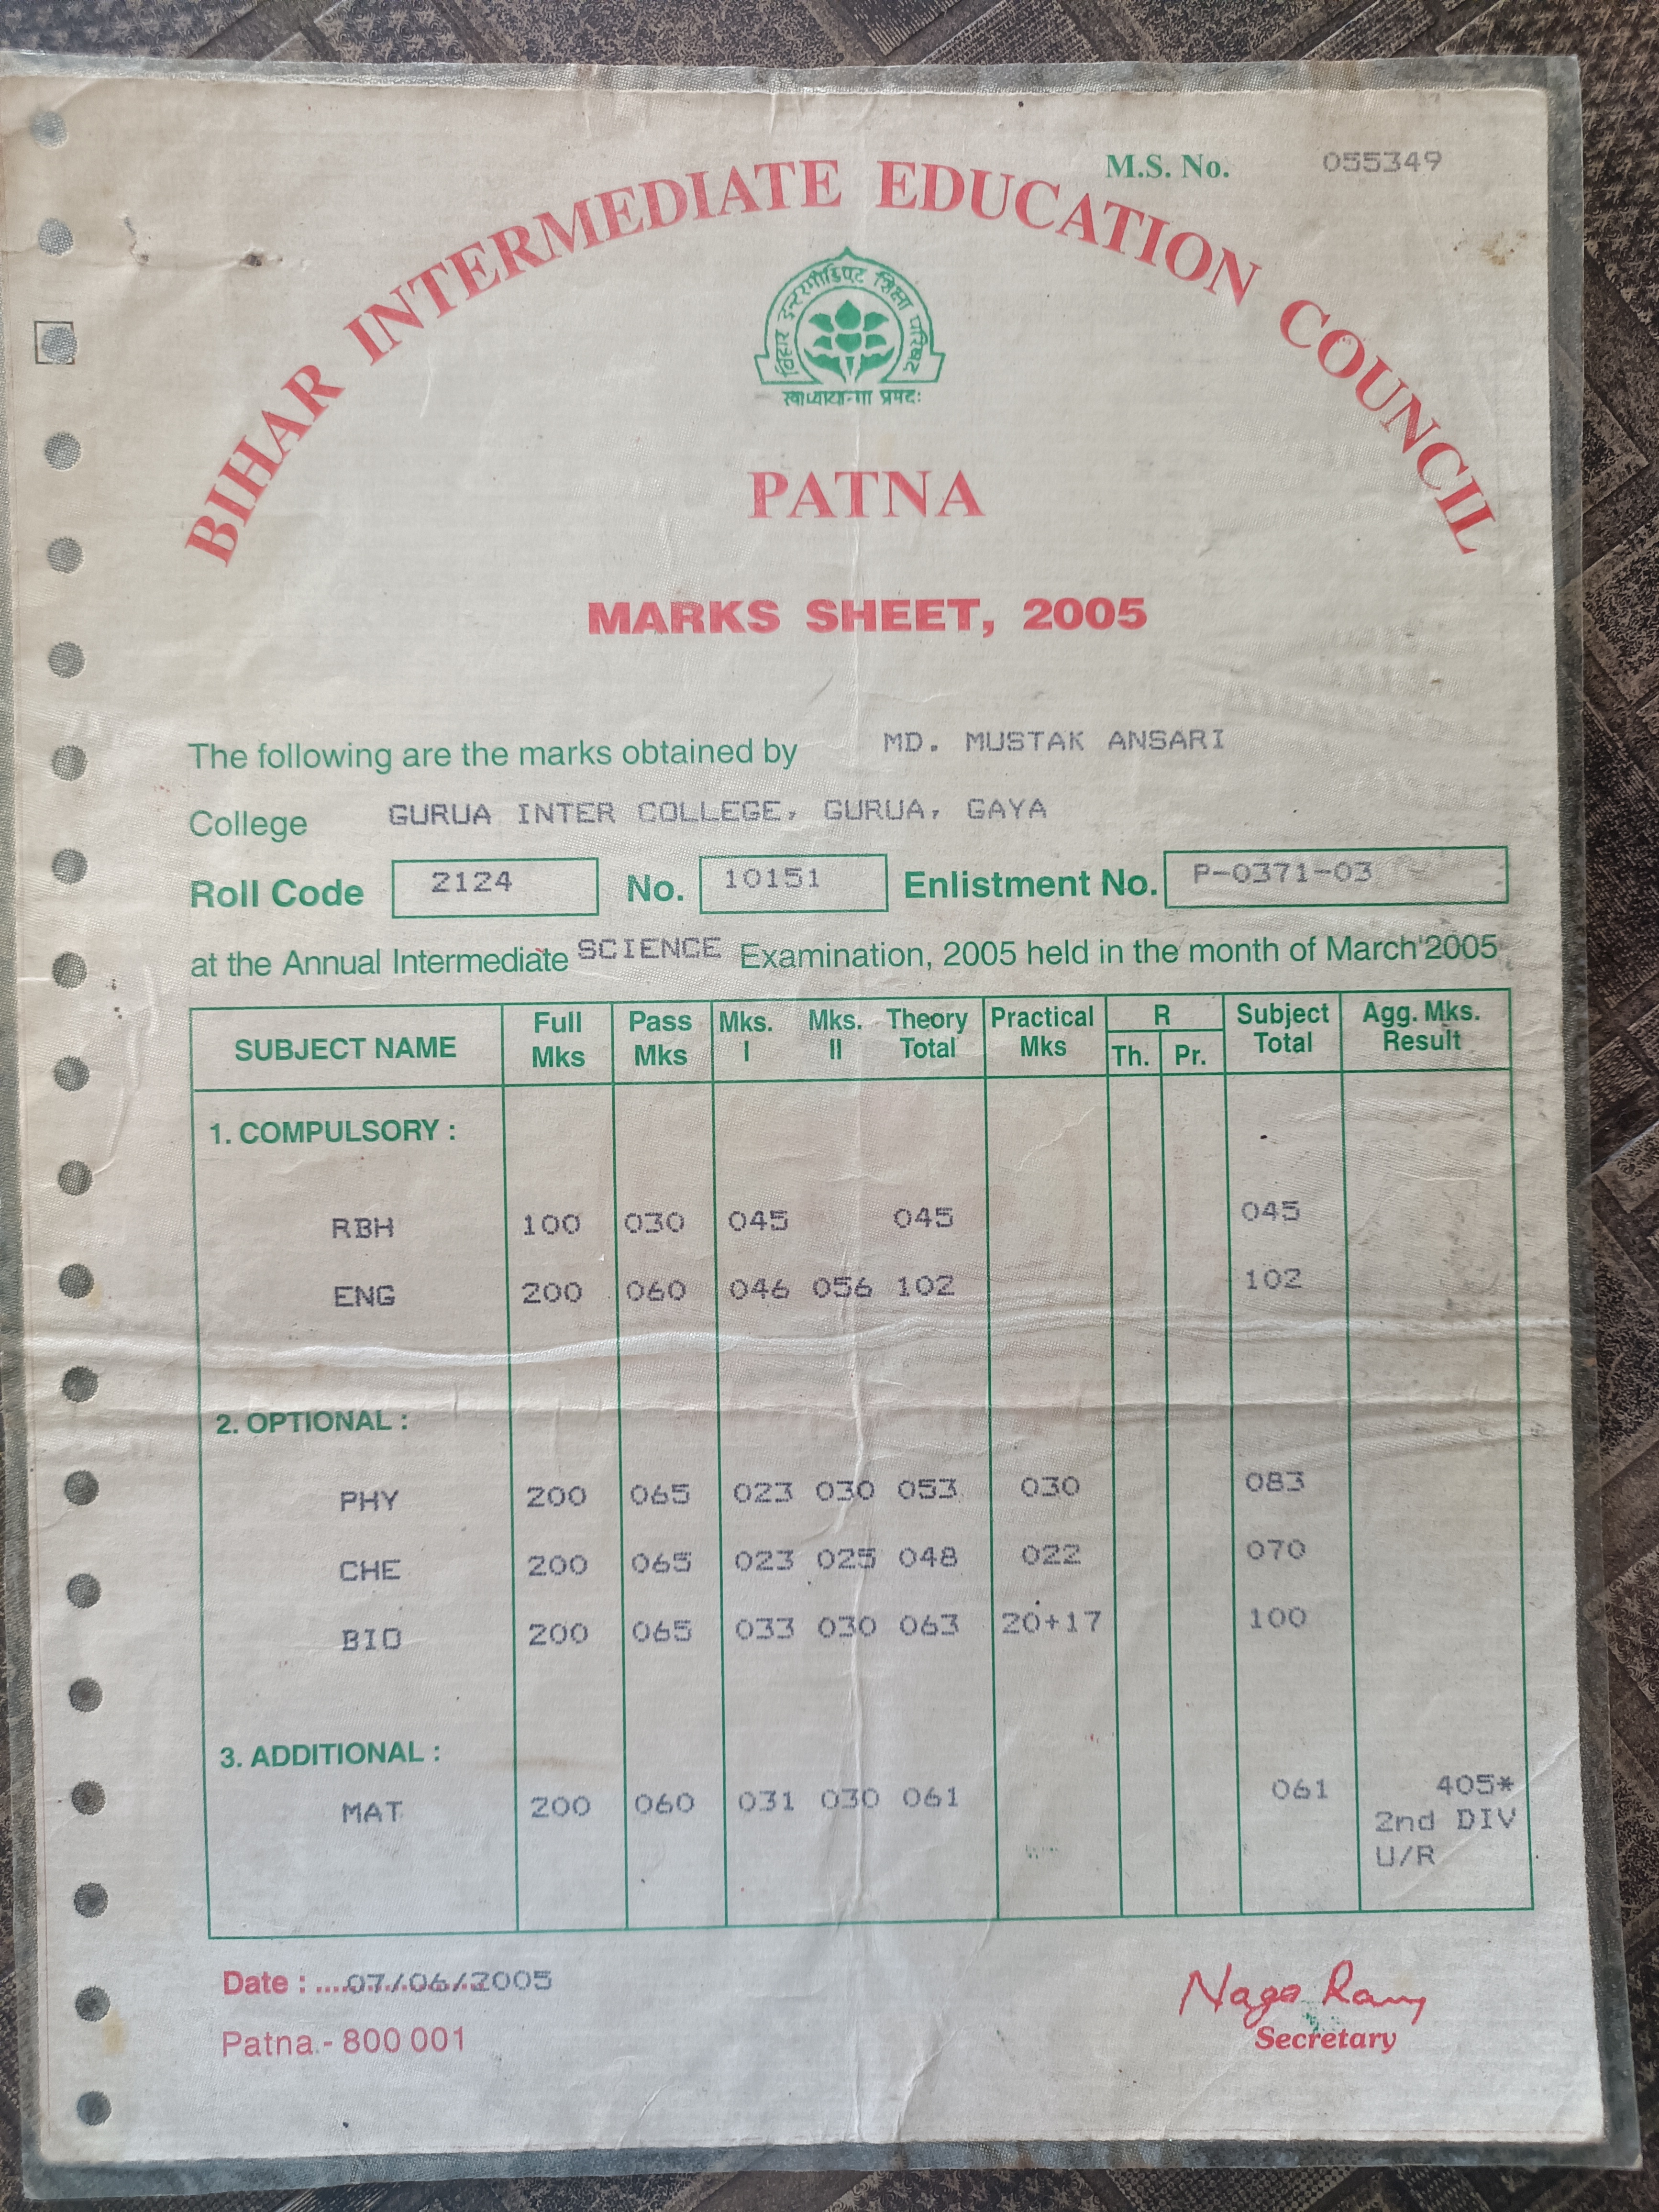 M.S. No. 055349
BIHAR INTERMEDIATE EDUCATION COUNCIL
बिहार इन्टरमीडिएट शिक्षा परिषद
PATNA
MARKS SHEET, 2005
The following are the marks obtained by MD. MUSTAK ANSARI
College GURUA INTER COLLEGE, GURUA, GAYA
Roll Code 2124 No. 10151 Enlistment No. P-0371-03
at the Annual Intermediate SCIENCE Examination, 2005 held in the month of March'2005
SUBJECT NAME Full Mks Pass Mks Mks. I Mks. II Theory Total Practical Mks R Th. Pr. Subject Total Agg. Mks. Result
1. COMPULSORY :
RBH 100 030 045 045 045
ENG 200 060 046 056 102 102
2. OPTIONAL :
PHY 200 065 023 030 053 030 083
CHE 200 065 023 025 048 022 070
BIO 200 065 033 030 063 20+17 100
3. ADDITIONAL :
MAT 200 060 031 030 061 061 405*
2nd DIV
U/R
Date : ....07/06/2005
Patna - 800 001
Secretary